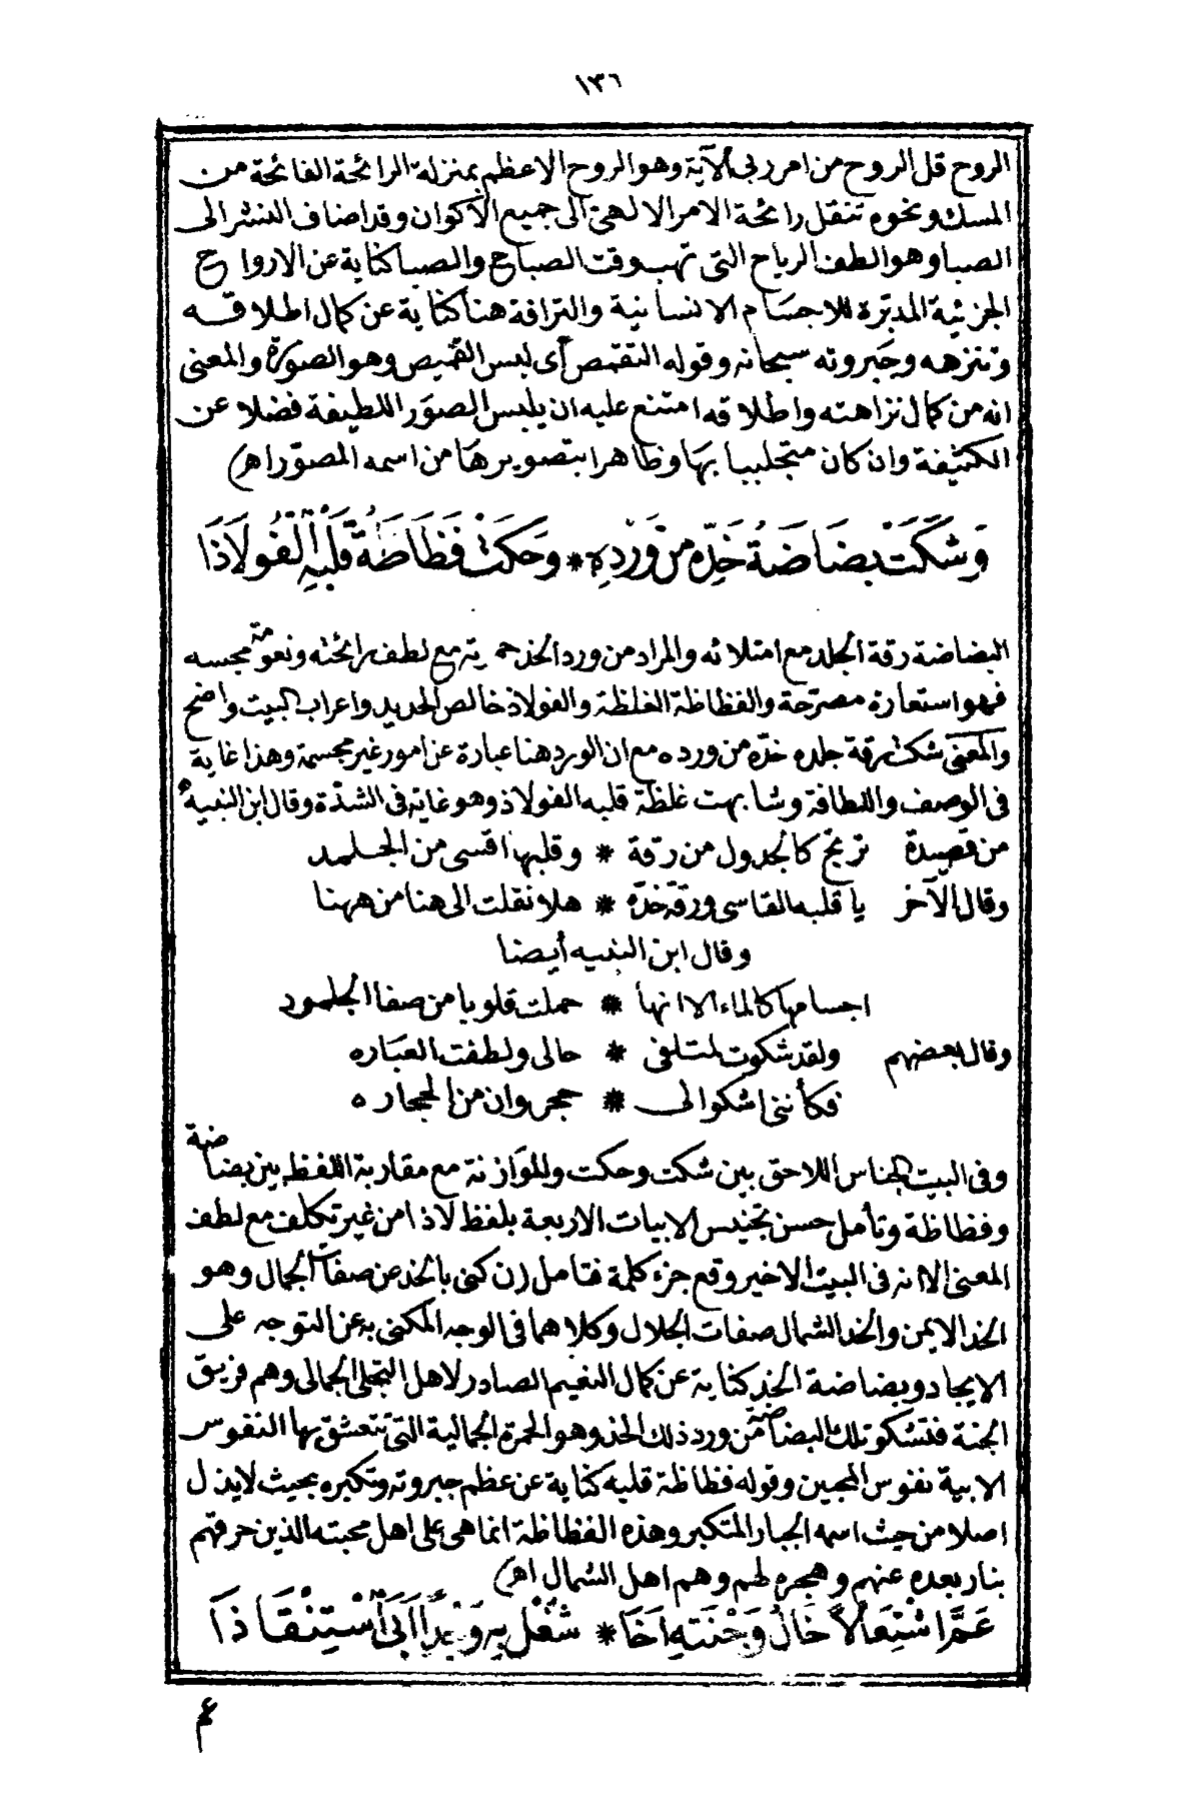 ١٣٦
الروح قل الروح من امر ربى الآية وهو الروح الاعظم بمنزلة الرائحة الفائحة من
المسك ونحوه تنقل رائحة الامر الالهى الى جميع الاكوان وقد اضاف النشر الى
الصبا وهو الطف الرياح التى تهب وقت الصباح والصبا كناية عن الارواح
الجزئية المدبّرة للاجسام الانسانية والترافة هنا كناية عن كمال اطلاقه
وتنزهه وجبروته سبحانه وقوله التقمص أى لبس القميص وهو الصورة والمعنى
انه من كمال نزاهته واطلاقه امتنع عليه ان يلبس الصور اللطيفة فضلا عن
الكثيفة وان كان متجلببا بها وظاهرا بتصويرها من اسمه المصوّر اهـ)
وَشَكَتْ بَضَاضَةُ خَدِّهِ مِنْ وَرْدِهِ * وَحَكَتْ فَظَاظَةُ قَلْبِهِ الْفُولَاذَا
البضاضة رقة الجلد مع امتلائه والمراد من ورد الخد حمرته مع لطف رائحته ونعومة مجسه
فهو استعارة مصرّحة والفظاظة الغلظة والفولاذ خالص الحديد واعراب البيت واضح
والمعنى شكت رقة جلده خدّه من ورده مع ان الورد هنا عبارة عن امور غير مجسمة وهذا غاية
فى الوصف واللطافة وشابهت غلظة قلبه الفولاذ وهو غاية فى الشدّة وقال ابن النبيه
من قصيدة ترتج كالجدول من رقة * وقلبها اقسى من الجلمد
وقال الآخر يا قلبه القاسى ورقة خدّه * هلا نقلت الى هنا من ههنا
وقال ابن النبيه أيضا
اجسامها كالماء الا انها * حملت قلوبا من صفا الجلمود
وقال بعضهم ولقد شكوت لمتلفى * حالى ولطفت العباره
فكأننى اشكو الى * حجر وان من الحجاره
وفى البيت الجناس اللاحق بين شكت وحكت والموازنة مع مقاربة اللفظ بين بضاضة
وفظاظة وتأمل حسن تجنيس الابيات الاربعة بلفظ لاذا من غير تكلف مع لطف
المعنى الا انه فى البيت الاخير وقع جزء كلمة فتامل (ن كنى بالخد عن صفات الجمال وهو
الخد الايمن والخد الشمال صفات الجلال وكلاهما فى الوجه المكنى به عن التوجه على
الايجاد وبضاضة الخد كناية عن كمال النعيم الصادر لاهل التجلى الجمالى وهم فريق
الجنة فتشكو تلك البضاضة من ورد ذلك الخد وهو الحمرة الجمالية التى تتعشق بها النفوس
الابية نفوس المحبين وقوله فظاظة قلبه كناية عن عظم جبروته وتكبره بحيث لا يذل
اصلا من حيث اسمه الجبار المتكبر وهذه الفظاظة انما هى على اهل محبته الذين حرقهم
بنار بعده عنهم وهجره لهم وهم اهل الشمال اهـ)
عَمَّ اشْتِعَالًا خَالُ وَجْنَتِهِ اَخَا * شُغْلٍ بِهِ وَجْدًا اَبَى اسْتِنْقَاذَا